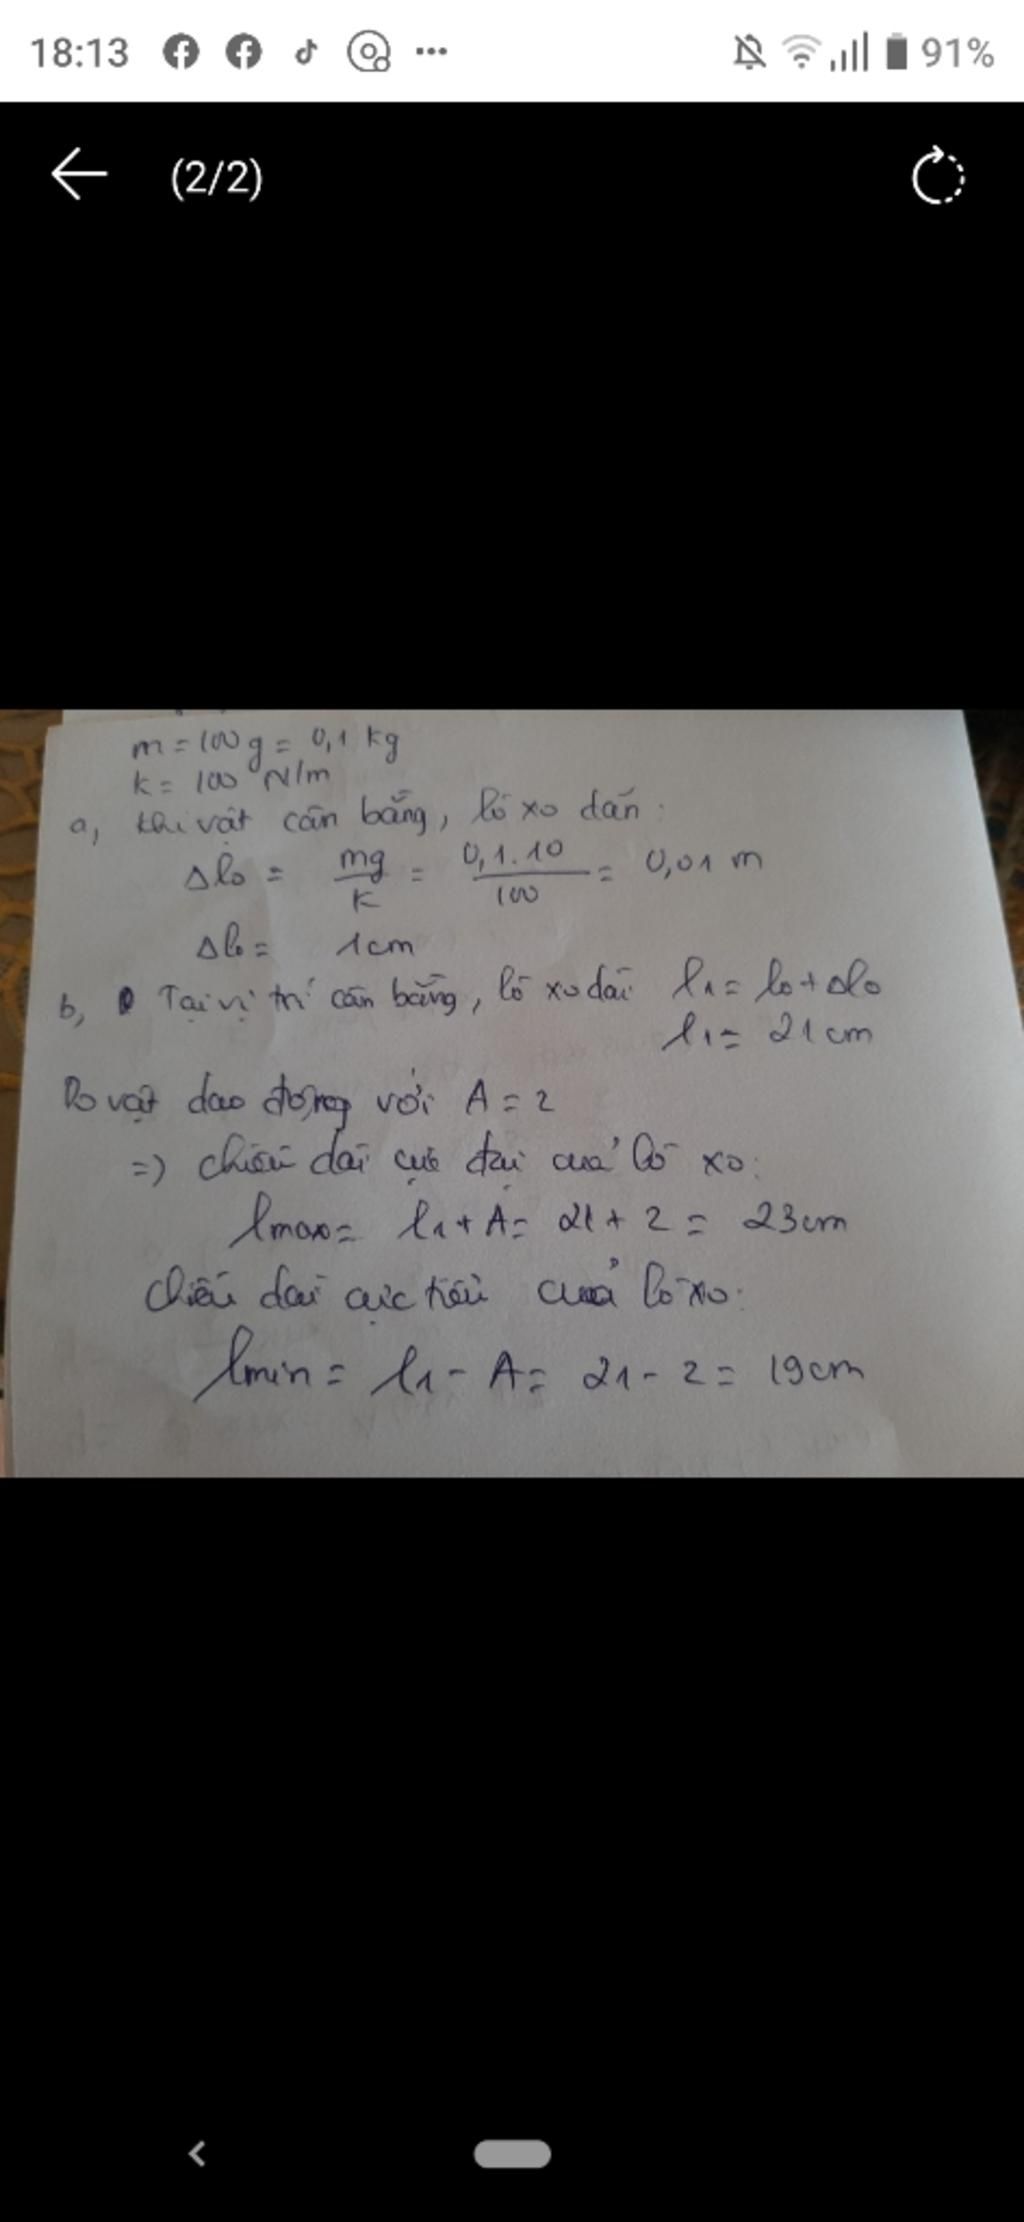 18:13 91%
(2/2)
m = 100g = 0,1 kg
k = 100 N/m
a, Khi vật cân bằng, lò xo dãn:
Δl₀ = mg/K = 0,1.10/100 = 0,01 m
Δl₀ = 1cm
b, Tại vị trí cân bằng, lò xo dài l₁ = l₀ + Δl₀
l₁ = 21 cm
Do vật dao động với A = 2
=) chiều dài cực đại của lò xo:
lmax = l₁ + A = 21 + 2 = 23cm
Chiều dài cực tiểu của lò xo:
lmin = l₁ - A = 21 - 2 = 19cm